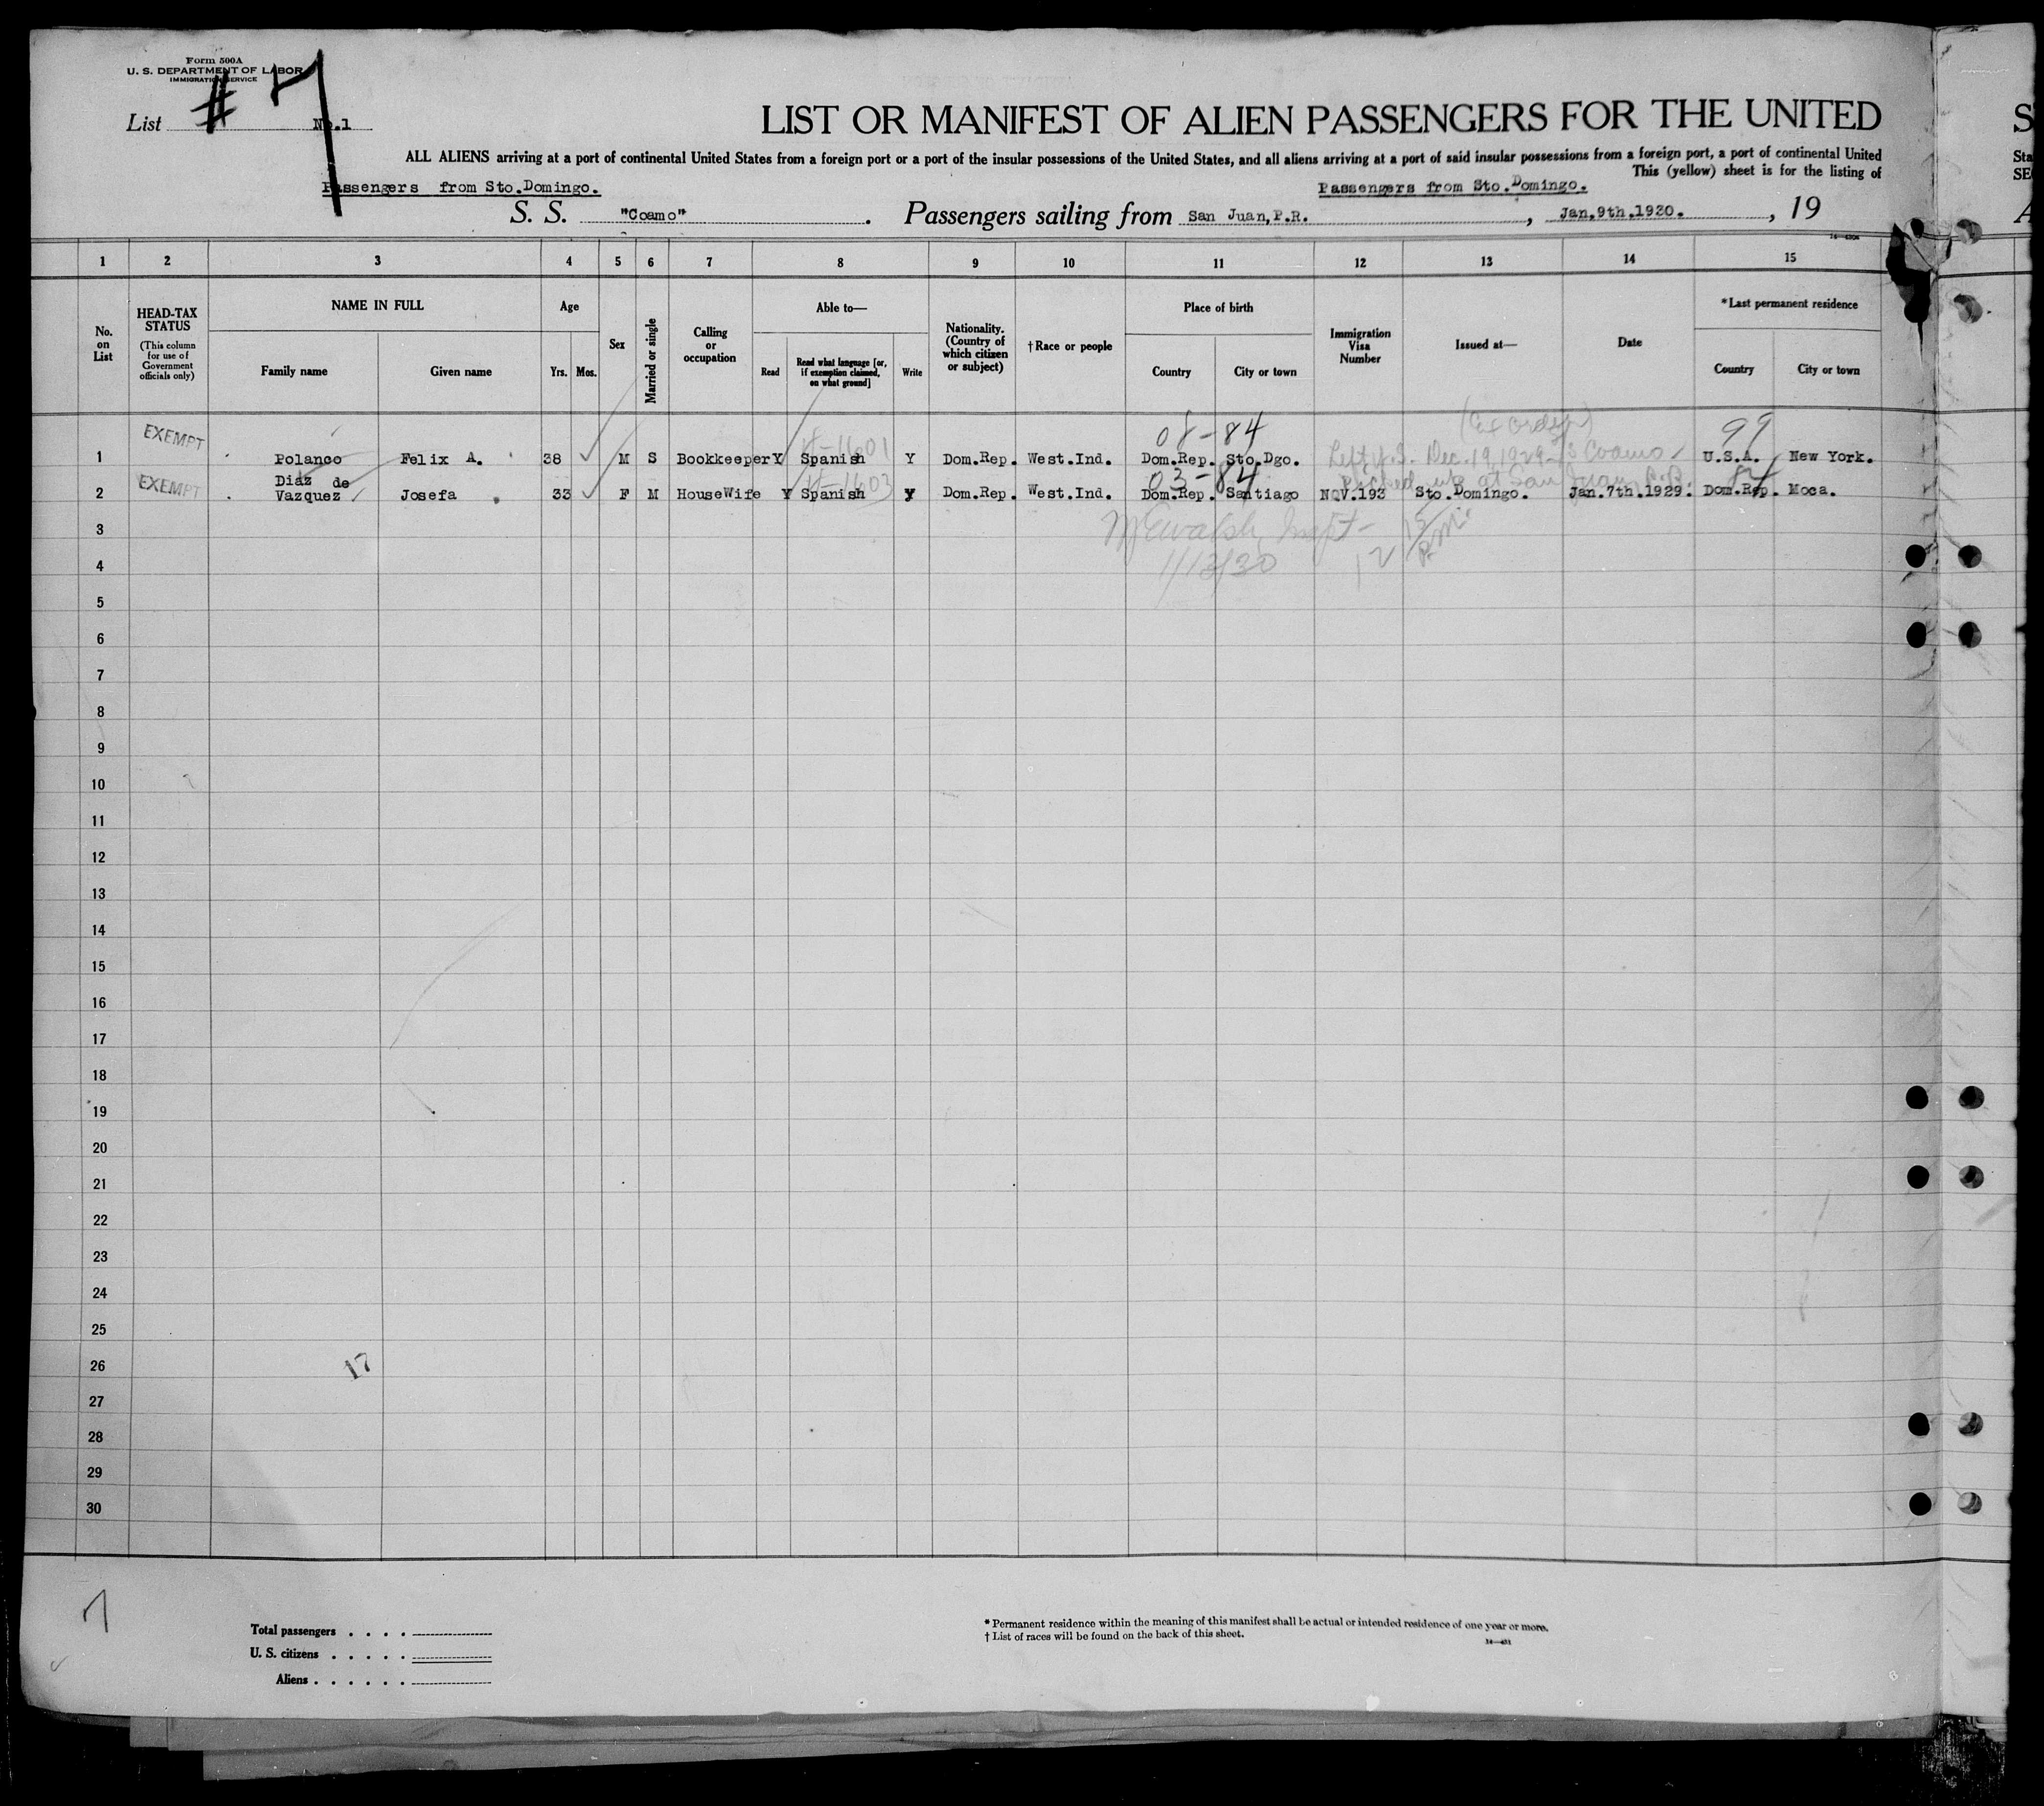 Form 500A
U. S. DEPARTMENT OF LABOR
IMMIGRATION SERVICE
List # 7 No.1
LIST OR MANIFEST OF ALIEN PASSENGERS FOR THE UNITED
ALL ALIENS arriving at a port of continental United States from a foreign port or a port of the insular possessions of the United States, and all aliens arriving at a port of said insular possessions from a foreign port, a port of continental United
This (yellow) sheet is for the listing of
Passengers from Sto.Domingo. Passengers from Sto.Domingo.
S. S. "Coamo". Passengers sailing from San Juan,P.R., Jan.9th.1930., 19
S
Sta
SE
1 2 3 4 5 6 7 8 9 10 11 12 13 14 15
No. on List
HEAD-TAX STATUS
(This column for use of Government officials only)
NAME IN FULL
Family name Given name
Age
Yrs. Mos.
Sex
Married or single
Calling or occupation
Able to—
Read
Read what language [or, if exemption claimed, on what ground]
Write
Nationality. (Country of which citizen or subject)
†Race or people
Place of birth
Country City or town
Immigration Visa Number
Issued at—
Date
*Last permanent residence
Country City or town
08-84 99
1 EXEMPT Polanco Felix A. 38 M S Bookkeeper Y Spanish Y Dom.Rep. West.Ind. Dom.Rep. Sto.Dgo. Left U.S. Dec. 19, 1929 Coamo U.S.A. New York.
03-84
Diaz de
2 EXEMPT Vazquez Josefa 33 F M HouseWife Y Spanish Y Dom.Rep. West.Ind. Dom.Rep. Santiago NQV.193 Sto.Domingo. Jan.7th.1929. Dom.Rep. Moca.
3
4 1/13/30
5
6
7
8
9
10
11
12
13
14
15
16
17
18
19
20
21
22
23
24
25
26 17
27
28
29
30
7
Total passengers . . . .
U. S. citizens . . . . .
Aliens . . . . . .
* Permanent residence within the meaning of this manifest shall be actual or intended residence of one year or more.
† List of races will be found on the back of this sheet.